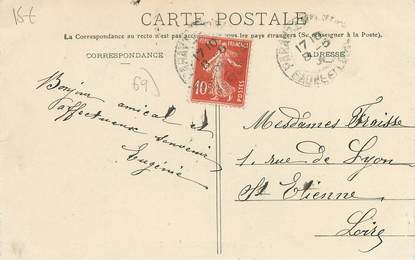 15€
CARTE POSTALE
La Correspondance au recto n'est pas acceptée par tous les pays étrangers (Se renseigner à la Poste).
CORRESPONDANCE
ADRESSE
69
10
POSTES
Bonjour amical et
affectueux souvenir
Eugénie
Mesdames Fraisse
1, rue de Lyon
St Etienne
Loire